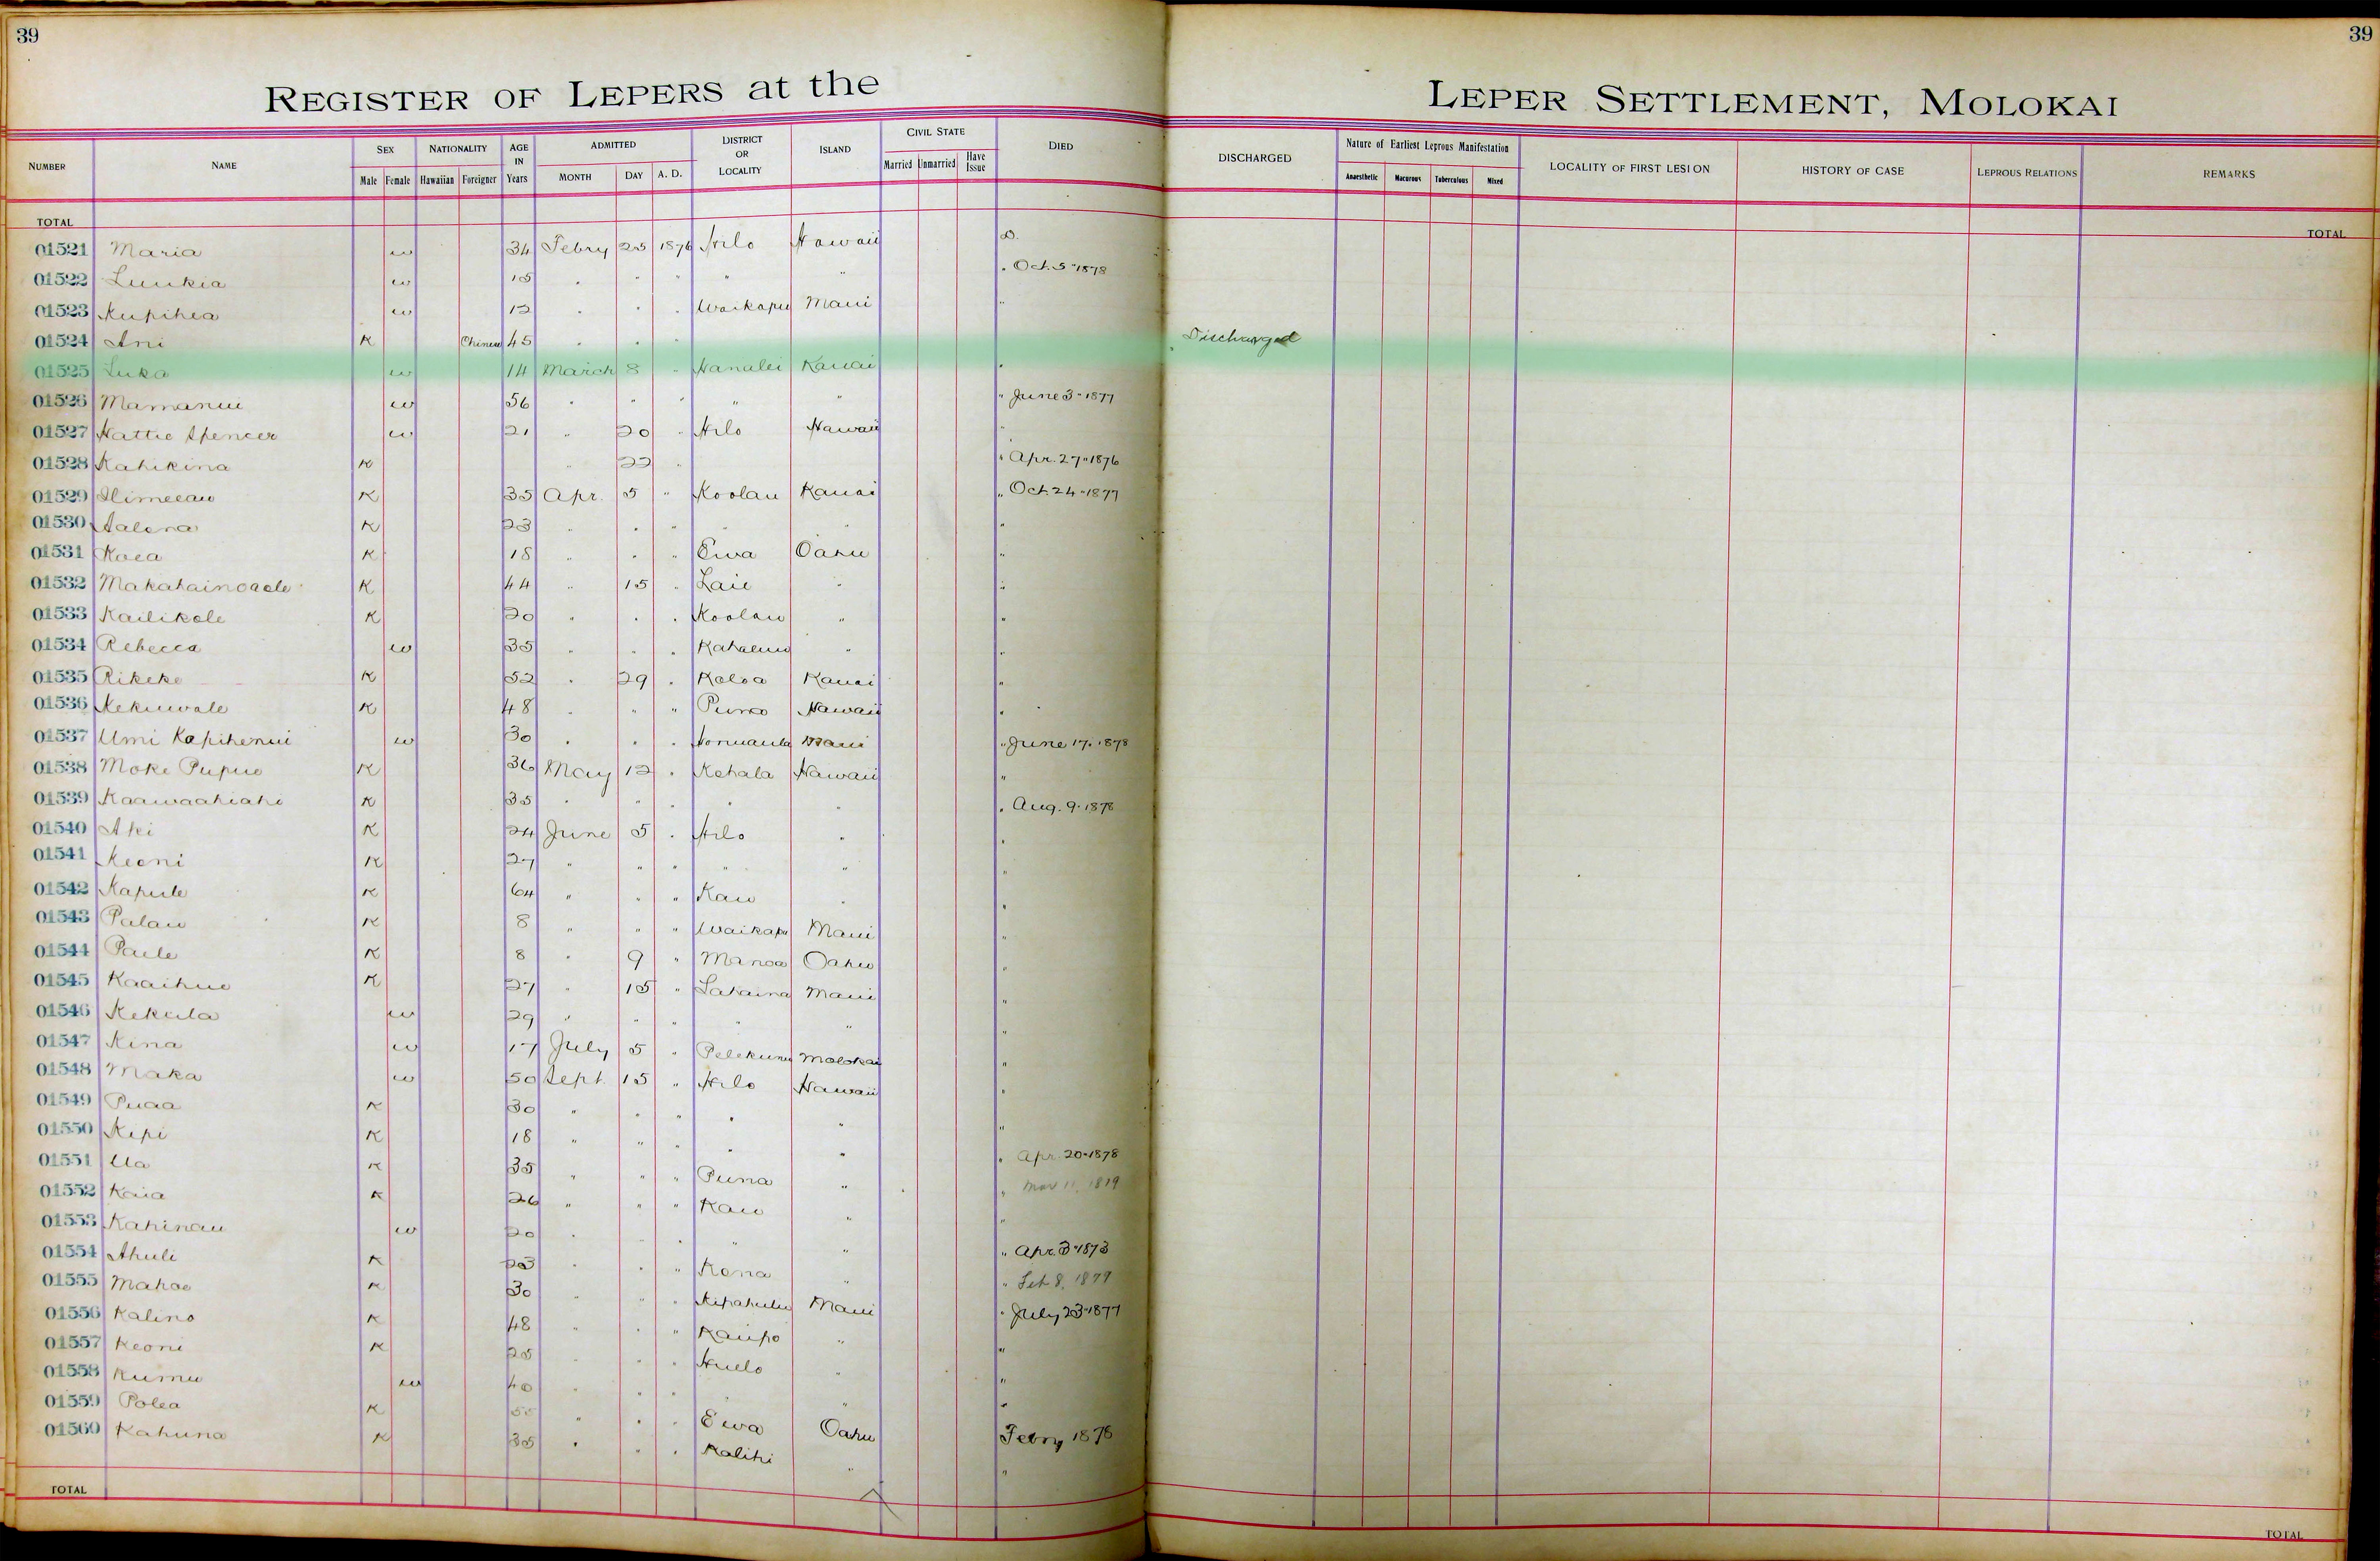 39
39
REGISTER OF LEPERS at the LEPER SETTLEMENT, MOLOKAI
NUMBER NAME SEX Male Female NATIONALITY Hawaiian Foreigner AGE IN Years ADMITTED MONTH DAY A. D. DISTRICT OR LOCALITY ISLAND CIVIL STATE Married Unmarried Have Issue DIED DISCHARGED Nature of Earliest Leprous Manifestation Anaesthetic Macurous Tuberculous Mixed LOCALITY OF FIRST LESION HISTORY OF CASE LEPROUS RELATIONS REMARKS
TOTAL TOTAL
01521 Maria w 34 Febry 25 1876 Hilo Hawaii D.
01522 Luukia w 15 " " " " " " Oct. 5 " 1878
01523 Kupihea w 12 " " " Waikapu Maui "
01524 Ani K Chinese 45 " " " Discharged
01525 Luka w 14 March 8 " Hanalei Kauai "
01526 Mamanui w 56 " " " " " " June 3 " 1877
01527 Hattie Spencer w 21 " 20 " Hilo Hawaii "
01528 Kahikina K " 22 " " Apr. 27 " 1876
01529 K 35 Apr. 5 " Koolau Kauai " Oct. 24 " 1877
01530 Aalona K 23 " " " " " "
01531 Koea K 18 " " " Ewa Oahu "
01532 Makahainoaole K 44 " 15 " Laie " "
01533 Kailikole K 20 " " " Koolau " "
01534 Rebecca w 35 " " " Kahaluu " "
01535 Rikeke K 52 " 29 " Koloa Kauai "
01536 Kekuwale K 48 " " " Puna Hawaii "
01537 Umi Kapihenui w 30 " " " Honuaula Maui " June 17. 1878
01538 Moke Pupuo K 36 May 12 " Kohala Hawaii "
01539 Kaawaahiahi K 35 " " " " " " Aug. 9. 1878
01540 Aki K 24 June 5 " Hilo " "
01541 Keoni K 27 " " " " " "
01542 Kapule K 64 " " " Kau " "
01543 Palau K 8 " " " Waikapu Maui "
01544 Paele K 8 " 9 " Manoa Oahu "
01545 Kaaihue K 27 " 15 " Lahaina Maui "
01546 Kekula w 29 " " " " " "
01547 Kina w 17 July 5 " Pelekunu Molokai "
01548 Maka w 50 Sept. 15 " Hilo Hawaii "
01549 Puaa K 30 " " " " " "
01550 Kepi K 18 " " " " " " Apr. 20 " 1878
01551 Ua K 35 " " " Puna " " Mar 11, 1879
01552 Kaia K 26 " " " Kau " "
01553 Kahinau w 20 " " " " " " Apr. 3 " 1873
01554 Ahuli K 23 " " " Kona " " Feb 8, 1879
01555 Mahoe K 30 " " " Kipahulu Maui " July 23 " 1877
01556 Kalino K 48 " " " Kaupo " "
01557 Keoni K 25 " " " Huelo " "
01558 Kumu w 40 " " " " "
01559 Polea K 55 " " " Ewa Oahu Febry 1878
01560 Kahuna K 35 " " " Kalihi " "
TOTAL TOTAL